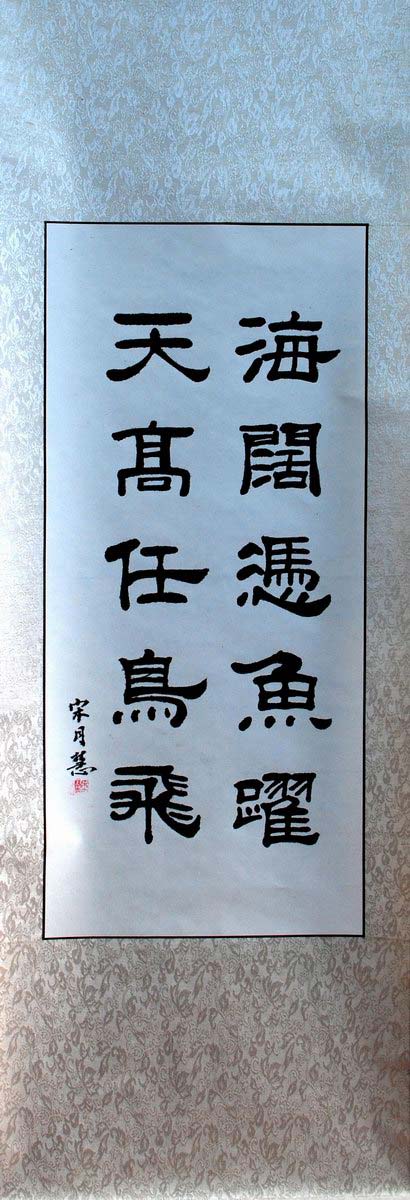 海闊憑魚躍
天高任鳥飛
宋月慧